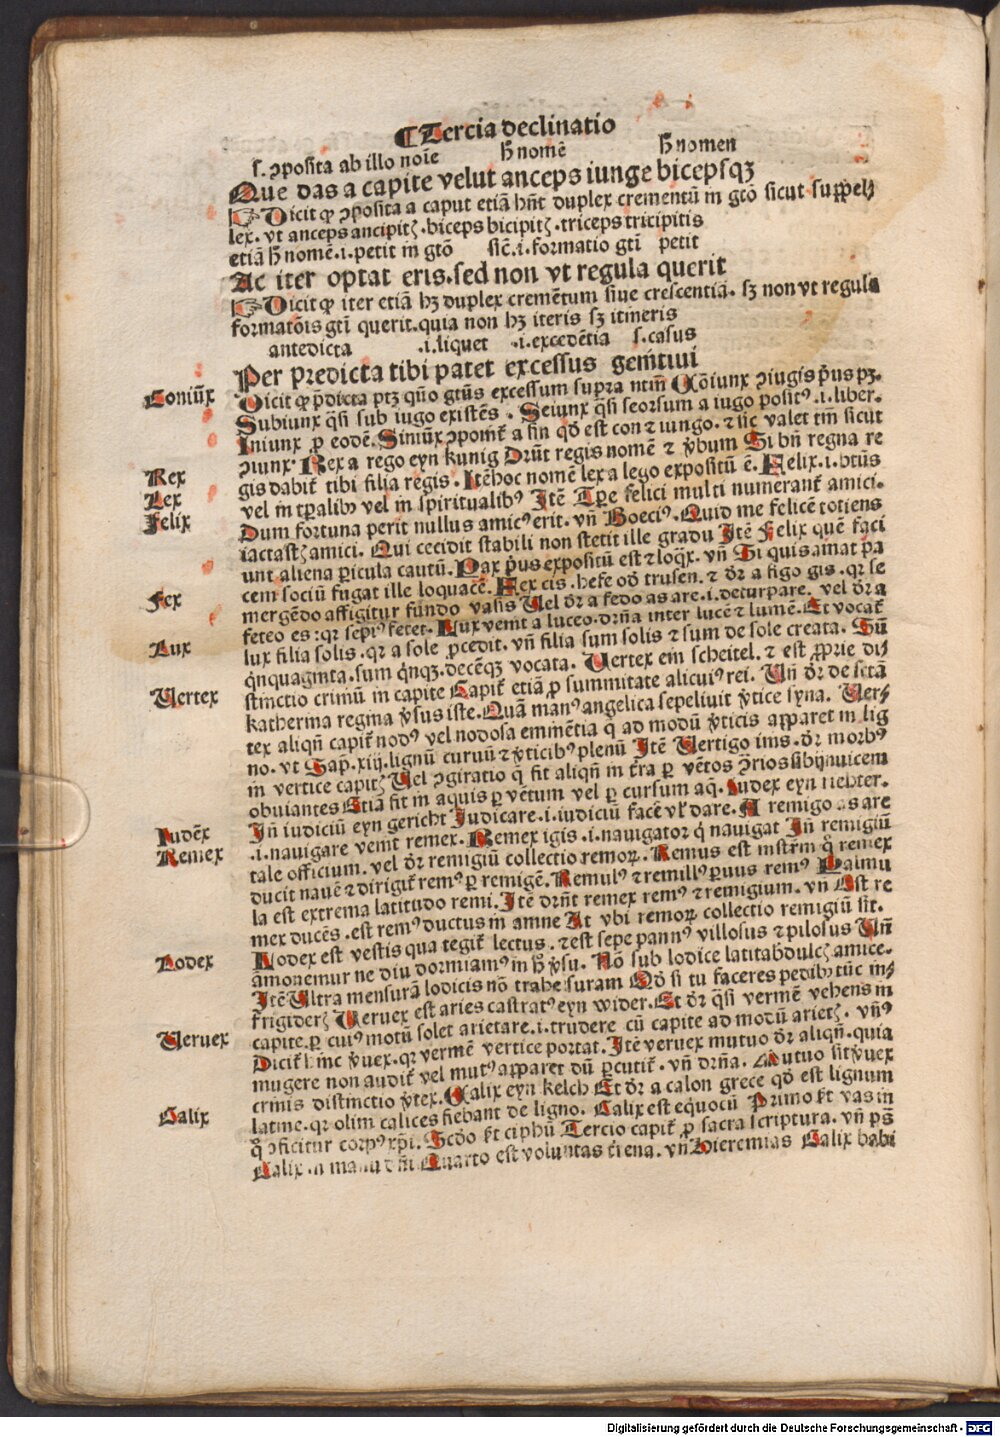 ¶Tercia declinatio
s. ꝯposita ab illo noīe ħ nomē ħ nomen
Que das a capite velut anceps iunge bicepsqꝫ
☞Dicit ꝙ ꝯposita a caput etiā hn̄t duplex crementū in gtō sicut supꝑel⸗
lex. vt anceps ancipitꝭ. biceps bicipitꝭ. triceps tricipitis
etiā ħ nomē .i. petit in gtō sic̄ .i. formatio gtī petit
Ac iter optat eris. sed non vt regula querit
☞Dicit ꝙ iter etiā hꝫ duplex cremētum siue crescentiā. sꝫ non vt regula
formatōis gtī querit. quia non hꝫ iteris sꝫ itineris
antedicta .i. liquet .i. excedētia s. casus
Per predicta tibi patet excessus genitiui
Dicit ꝙ p̄dicta ptꝫ qūo gtūs excessum supra ntīm Cōiunx ꝯiugis p̄us pꝫ.
Coniūx
Subiunx q̄si sub iugo existēs. Seiunx q̄si seorsum a iugo positꝰ .i. liber.
Iniunx ꝓ eodē. Siniūx ꝯponit̄ a sin qd̄ est con ⁊ iungo. ⁊ sic valet tm̄ sicut
ꝯiunx. Rex a rego eyn kunig Dr̄nt regis nomē ⁊ v̄bum Si bn̄ regna re
Rex
gis dabit̄ tibi filia regis. Itē hoc nomē lex a lego expositū ē. Felix .i. btūs
Lex
vel in tꝑalibꝰ vel in spiritualibꝰ Itē Tꝑe felici multi numerant̄ amici.
Felix
Dum fortuna perit nullus amicꝰ erit. vn̄ Boeciꝰ. Quid me felicē totiens
iactastꝭ amici. Qui cecidit stabili non stetit ille gradu Itē Felix quē faci
unt aliena ꝑicula cautū. Pax p̄us expositū est ⁊ loqx̄. vn̄ Si quis amat pa
cem sociū fugat ille loquacē. Fex cis. hefe od̓ trusen. ⁊ dr̄ a figo gis. qr se
Fex
mergēdo affigitur fundo vasis Uel dr̄ a fedo as are .i. deturpare. vel dr̄ a
feteo es: qr sepiꝰ fetet. Lux venit a luceo. dr̄na inter lucē ⁊ lumē. Et vocat̄
Lux
lux filia solis. qr a sole ꝓcedit. vn̄ filia sum solis ⁊ sum de sole creata. Sū
q̄nquaginta. sum q̄nqꝫ. decēqꝫ vocata. Uertex ein scheitel. ⁊ est ꝓprie di⸗
Uertex
stinctio crinīū in capite Capit̄ etiā ꝓ summitate alicuiꝰ rei. Un̄ dr̄ de sctā
katherina regina v̄sus iste. Quā manꝰ angelica sepeliuit v̄tice syna. Uer⸗
tex aliqn̄ capit̄ nodꝰ vel nodosa eminētia q̄ ad modū v̄ticis apꝑaret in lig
no. vt Sap̄. xiij. lignū curuū ⁊ v̄ticibꝰ plenū Itē Uertigo inis. dr̄ morbꝰ
in vertice capitꝭ Uel ꝯgiratio q̄ fit aliqn̄ in tr̄ra ꝑ vētos ꝯrios sibijnuicem
obuiantes Etiā fit in aquis ꝑ vētum vel ꝑ cursum aq̄. Iudex eyn richter.
Iudex
In̄ iudiciū eyn gericht Iudicare .i. iudiciū facē vl̄ dare. A remigo as are
Remex
.i. nauigare venit remex. Remex igis .i. nauigator q̄ nauigat In̄ remigiū
tale officium. vel dr̄ remigiū collectio remoꝝ. Remus est instr̄m q̄ remex
ducit nauē ⁊ dirigit̄ remꝰ ꝑ remigē. Remulꝰ ⁊ remillꝰ ꝑuus remꝰ Palmu
la est extrema latitudo remi. Itē dr̄nt remex remꝰ ⁊ remigium. vn̄ Est re
mex ducēs. est remꝰ ductus in amne At vbi remoꝝ collectio remigiū sit.
Lodex
Lodex est vestis qua tegit̄ lectus. ⁊ est sepe pannꝰ villosus ⁊ pilosus Un̄
amonemur ne diu dormiamꝰ in ħ v̄su. Nō sub lodice latitabdulcꝭ amice.
Itē Ultra mensurā lodicis nō trahe suram Qd̄ si tu faceres pedibꝰ tūc in⸗
frigiderꝭ Ueruex est aries castratꝰ eyn wider. Et dr̄ q̄si vermē vehens in
Ueruex
capite. ꝑ cuiꝰ motū solet arietare .i. trudere cū capite ad modū arietꝭ. vn̄ꝰ
Dicit̄ hinc v̄uex. qr vermē vertice portat. Itē veruex mutuo dr̄ aliqn̄. quia
mugere non audit̄ vel mutꝰ apꝑaret dū ꝑcutit̄. vn̄ dr̄na. Mutuo sit v̄uex
crinis distinctio v̄tex. Calix eyn kelch Et dr̄ a calon grece qd̄ est lignum
Calix
latine. qr olim calices fiebant de ligno. Calix est equocū Primo est vas in
q̄ ꝯficitur corpꝰ xp̄i. Scdo est ciphū Tercio capit̄ ꝓ sacra scriptura. vn̄ ps̄
Calix in manu dn̄i Quarto est voluntas
vn̄ Hieremias Calix babi
Digitalisierung gefördert durch die Deutsche Forschungsgemeinschaft - DFG